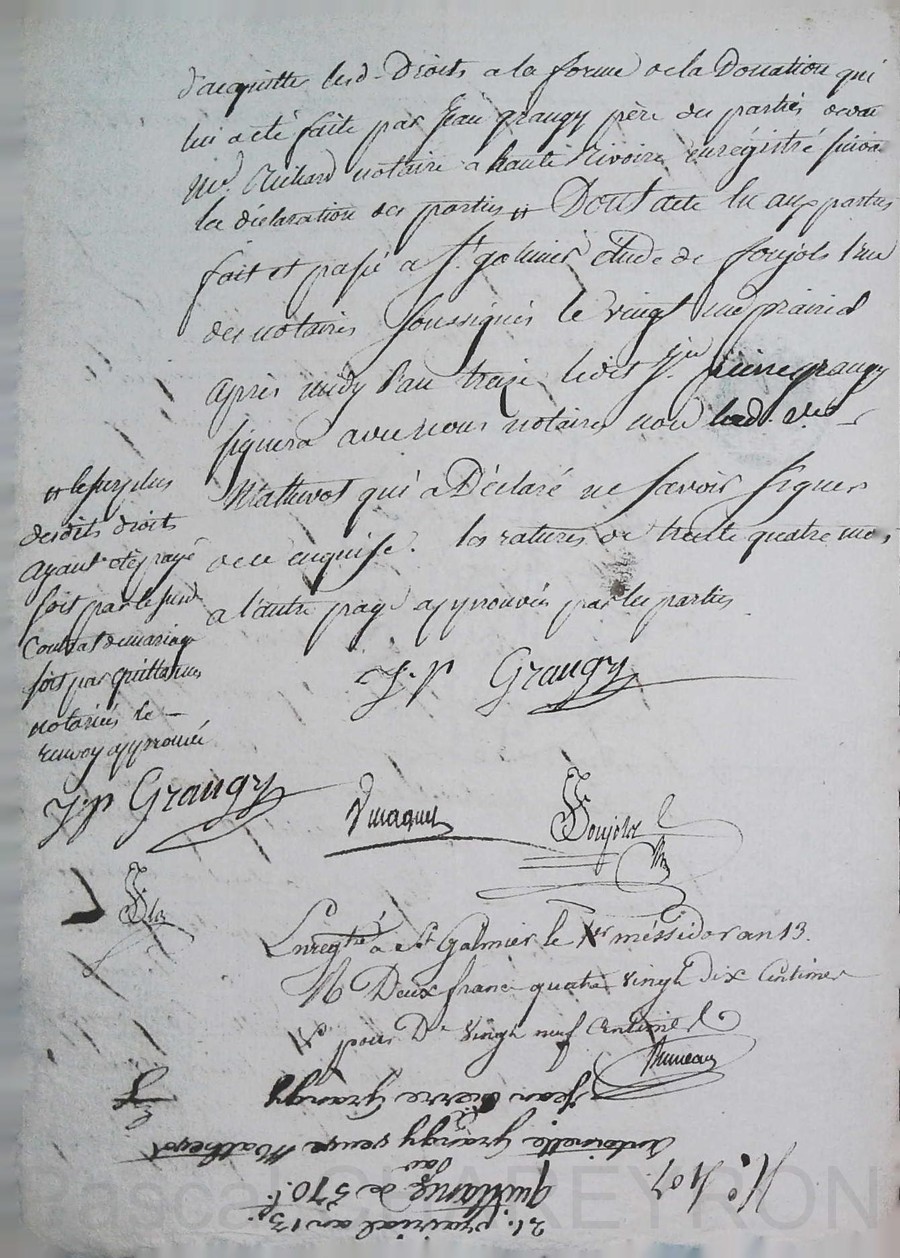 d'acquitter lesd. Droits a la forme de la Donation qui
lui a été faite par Jean grangy père des parties devan
Me. Richard notaire a haute Rivoire enregistré suiva
la déclaration des parties # Dont acte lu aux parties
fait et passé a St. galmier étude de foujols l'un
des notaires soussignés le vingt une prairial
après midy l'an treize ledit Sr. pierre grangy
signera avec nous notaires non lad. ve.
Mathevot qui a Déclaré ne Savoir signer
de ce enquise. les ratures de trente quatre mots
a l'autre page approuvées par les parties
# le surplus
desdits droits
ayant été payé
soit par le susd
Contrat de mariage
soit par quittances
notariées le
renvoy approuvé
J.P Grangy
J.P Grangy
foujols
Enregtré à St Galmier le 1er méssidor an 13.
R Deux francs quatre vingt dix Centimes
pour De vingt neuf Centimes
N.° 407
21. prairial an 13.
quittance de 370 f.
par
antoinette Grangy veuve Mathevot
a
jean pierre Grangy
Pascal CHAREYRON